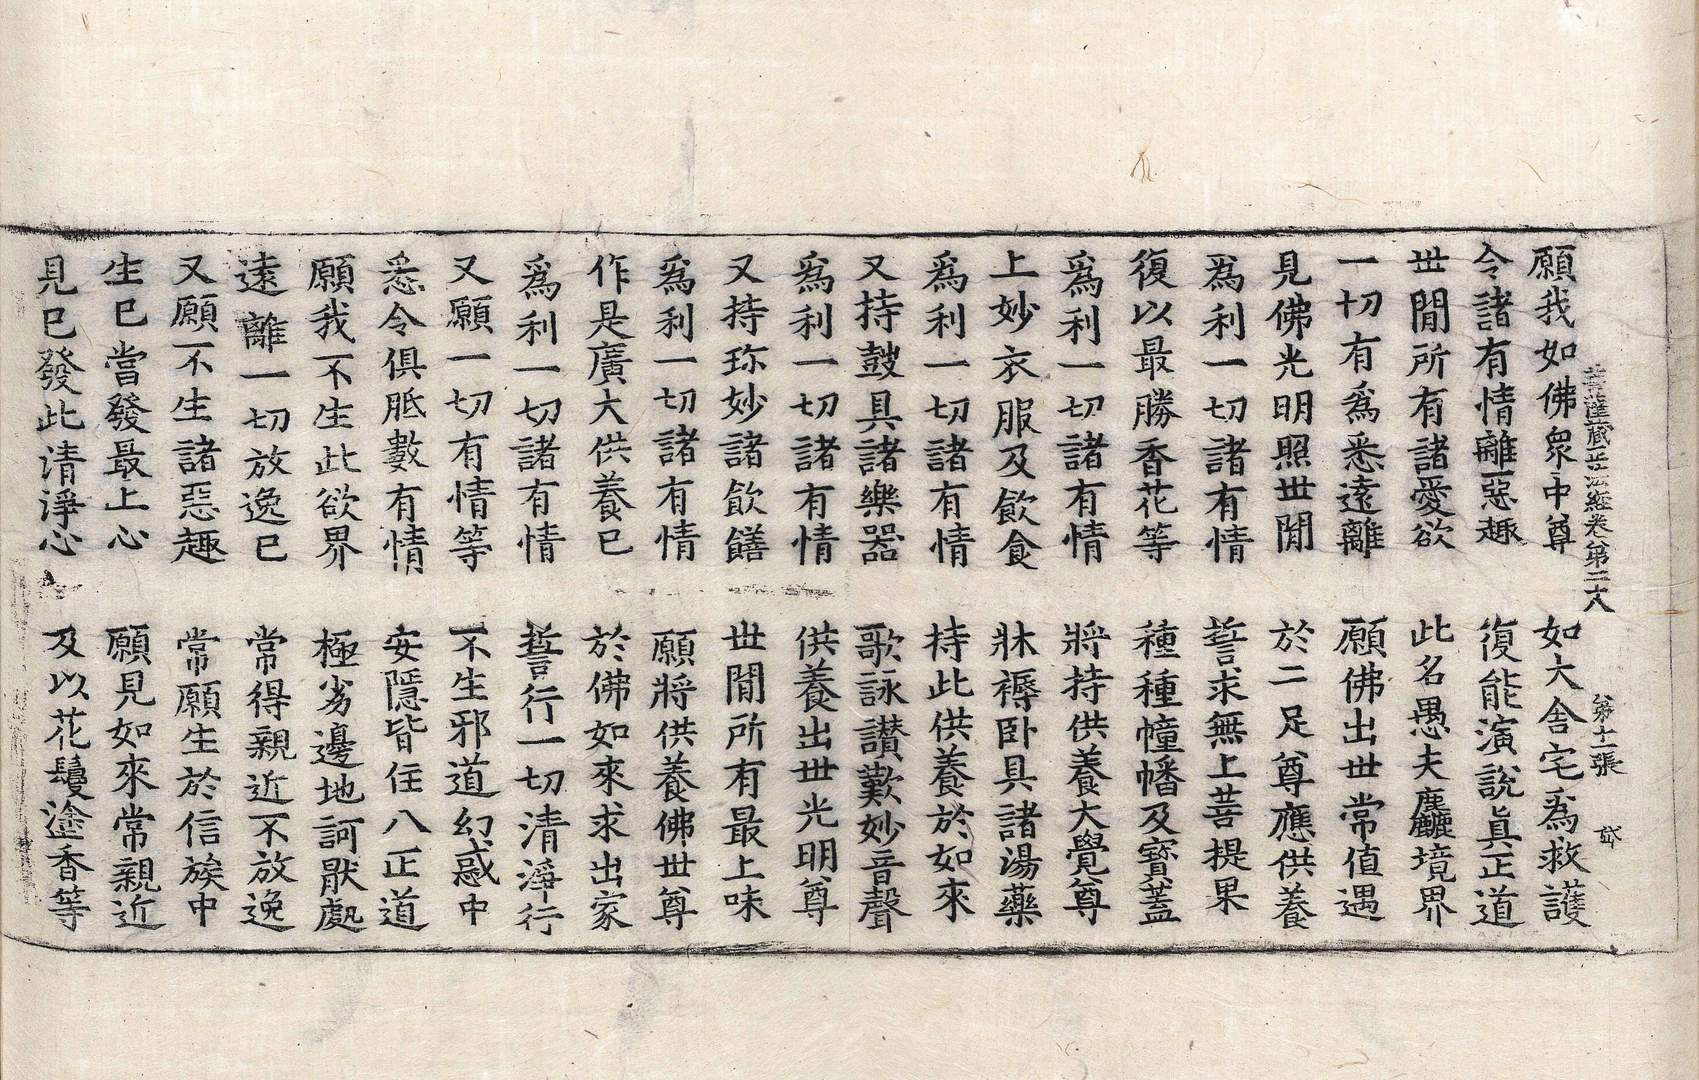 菩薩藏正法經卷第二八 第十一張
願我如佛衆中尊 如大舍宅爲救護
令諸有情離惡趣 復能演說眞正道
世閒所有諸愛欲 此名愚夫麤境界
一切有爲悉遠離 願佛出世常值遇
見佛光明照世閒 於二足尊應供養
爲利一切諸有情 誓求無上菩提果
復以最勝香花等 種種幢幡及寶蓋
爲利一切諸有情 將持供養大覺尊
上妙衣服及飮食 牀褥臥具諸湯藥
爲利一切諸有情 持此供養於如來
又持鼓具諸樂器 歌詠讃歎妙音聲
爲利一切諸有情 供養出世光明尊
又持珎妙諸飮饍 世閒所有最上味
爲利一切諸有情 願將供養佛世尊
作是廣大供養已 於佛如來求出家
爲利一切諸有情 誓行一切清淨行
又願一切有情等 不生邪道幻惑中
悉令俱胝數有情 安隱皆住八正道
願我不生此欲界 極劣邊地訶厭處
遠離一切放逸已 常得親近不放逸
又願不生諸惡趣 常願生於信族中
生已當發最上心 願見如來常親近
見已發此清淨心 及以花鬘塗香等